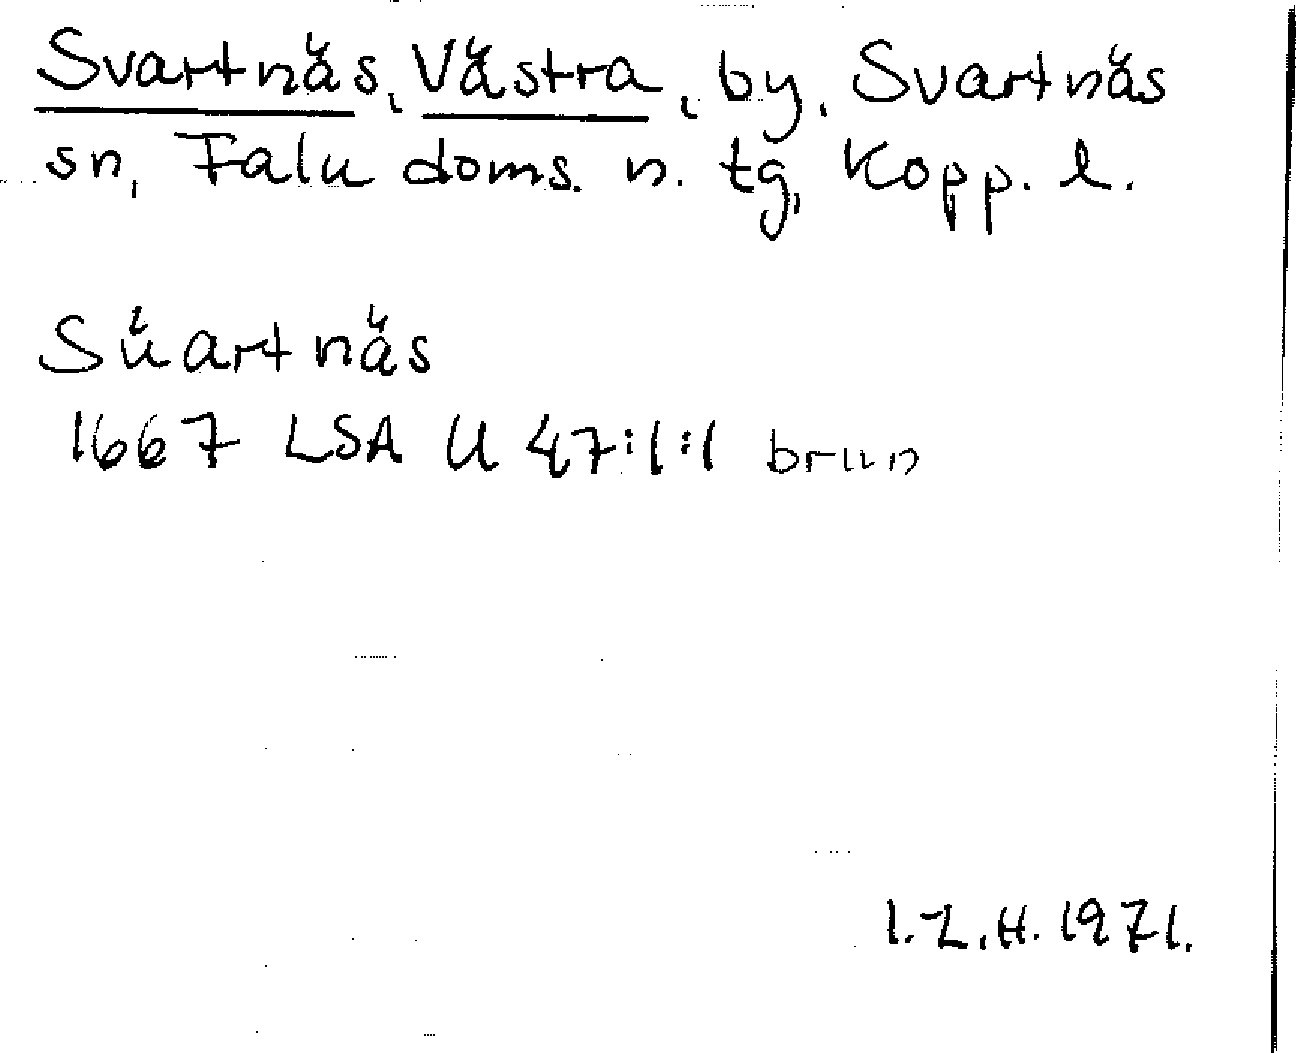 Svartnäs, Västra, by, Svartnäs
sn, Falu doms. n. tg, Kopp. l.
Süartnäs
1667 LSA U 47:1:1 brun
I.L.H. 1971.